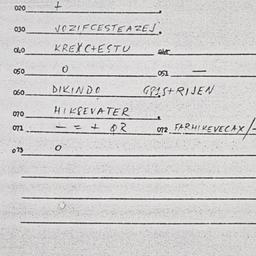 020 +
030 JOZIFCESTEAZEJ.
040 KREXC+ESTU
050 0 051 —
060 DIKINDO GPIS+RIJEN
070 HIKSEVATER
071 - = + QR 072 FARHIKEVECAX/-
073 0